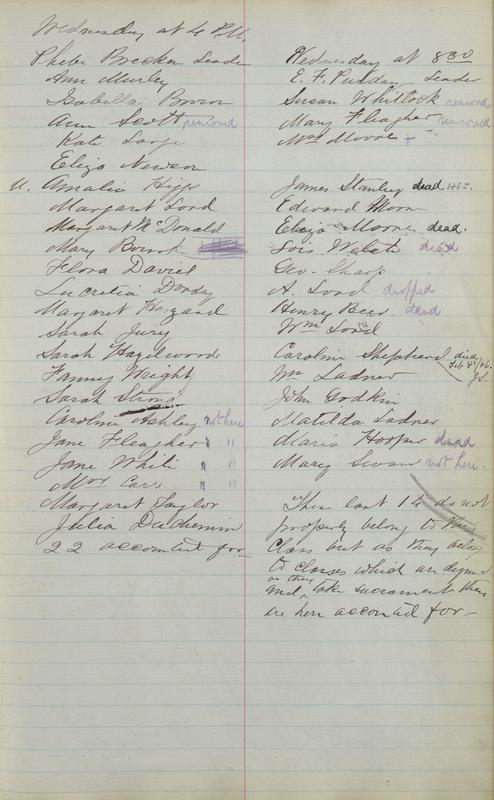 Wednesday at 4 P.M.
Phebe Becken Leader
Ann Murley
Isabella Brown
Ann Scott removed
Kate
Eliza
U. Amalia Higgs
Margaret Lord
Margaret McDonald
Mary
Flora David
Lucretia
Margaret
Sarah Jury
Sarah Hazelwood
Fanney Wright
Sarah Strong
Caroline Ashley not here
Jane Fleagher " "
Jane White " "
Mrs Carr " "
Margaret Taylor
Julia Duchemin
22 accounted for
Wednesday at 830
E. F. Purday Leader
Susan Whitlock removed
Mary Fleagher removed
Mrs Moore +
James Stanley dead
Edward Moore
Eliza Moore dead.
Lois Walsh died
Geo. Sharp
A. Lord dropped
Henry Beer dead
Wm Lord
Caroline Shepherd died Feb 8th/86. J.S.
Wm Ladner
John Godkin
Matilda Ladner
Maria Hooper dead
Mary Swan not here.
These last 14 do not
properly belong to this
Class but as they belong
to Classes which are
and as they take sacrament they
are here accounted for